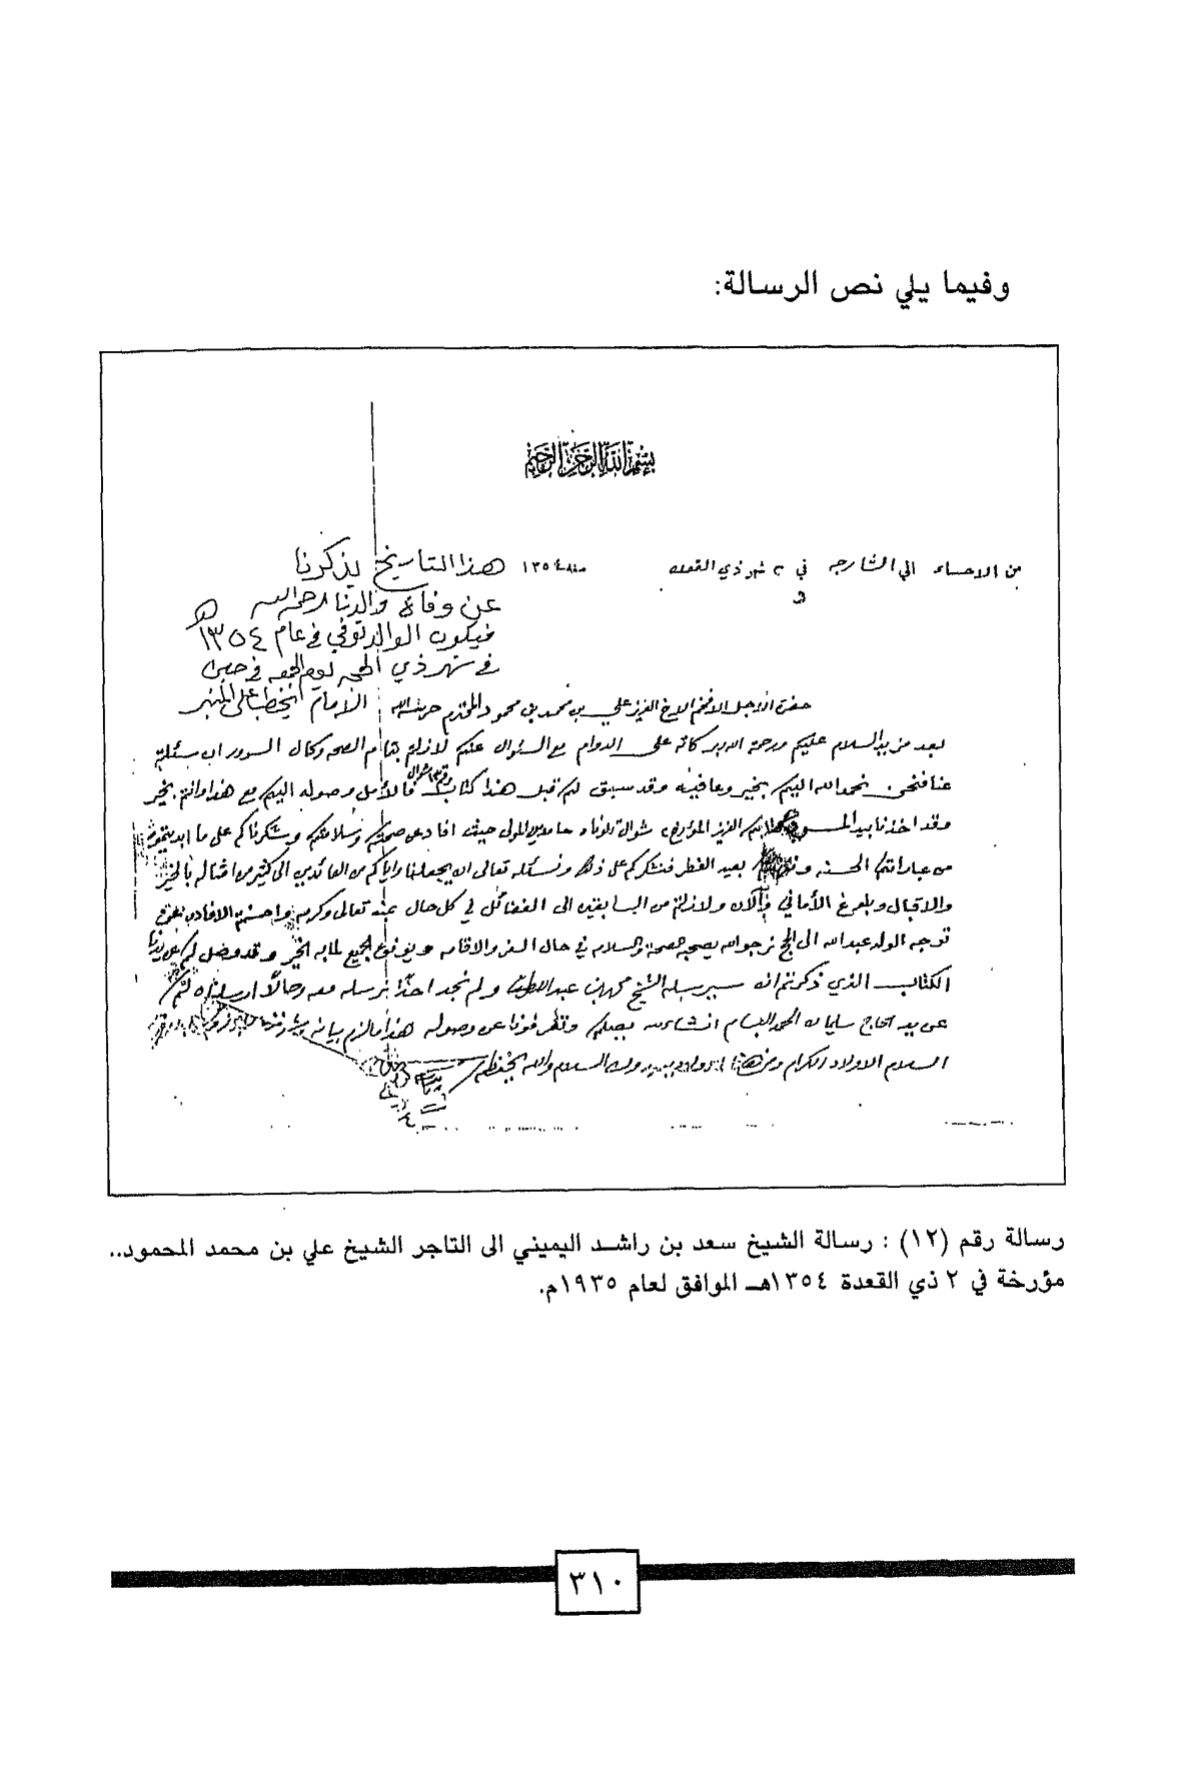 وفيما يلي نص الرسالة:
بسم الله الرحمن الرحيم
من الاحساء الى الشارجه في ٢ شهر ذي القعده سنة ١٣٥٤
هذا التاريخ يذكرنا
عن وفاة والدنا رحمه الله
فيكون الوالد توفي في عام ١٣٥٤ هـ
في شهر ذي الحجه يوم الجمعه في حين
الإمام يخطب على المنبر
حضرة الاجل الافخم الاخ العزيز علي بن محمد بن محمود المحترم حرسه الله
بعد مزيد السلام عليكم ورحمة الله وبركاته على الدوام مع السؤال عنكم لازلتم بتمام الصحه وكمال السرور ان سئلتم
عنا فنحن نحمد الله اليكم بخير وعافيه وقد سبق لكم قبل هذا كتاب فالأمل وصوله اليكم مع هذا وانتم بخير
وقد اخذنا بيد العزيز المؤرخ شوال تلوناه حامدين المولى حيث افاد عن صحتكم وسلامتكم وشكرناكم على ما
من عباراتكم الحسنه بعيد الفطر فنشكركم على ذلك ونسئله تعالى ان يجعلنا واياكم من العائدين الى كثير من امثاله بالخير
والاقبال وبلوغ الأماني ولازلتم من السابقين الى الفضائل في كل حال بمنه تعالى وكرمه
توجه الولد عبدالله الى الحج نرجو الله يصحبه الصحة والسلامه في حال السفر والاقامه ويوفق الجميع لما به الخير وقد وصل
الكتاب الذي ذكرتم انه سيرسله الشيخ عبداللطيف ولم نجد احدًا نرسله معه وحالًا ارسلناه لكم
على يد الحاج سليمان الحمد البسام انشاءالله يصلكم وتعرفونا عن وصوله هذا ما لزم بيانه
السلام الاولاد الكرام ومن هنا الاولاد يهدون السلام والله يحفظكم
رسالة رقم (١٢) : رسالة الشيخ سعد بن راشد اليميني الى التاجر الشيخ علي بن محمد المحمود..
مؤرخة في ٢ ذي القعدة ١٣٥٤هـ الموافق لعام ١٩٣٥م.
٣١٠